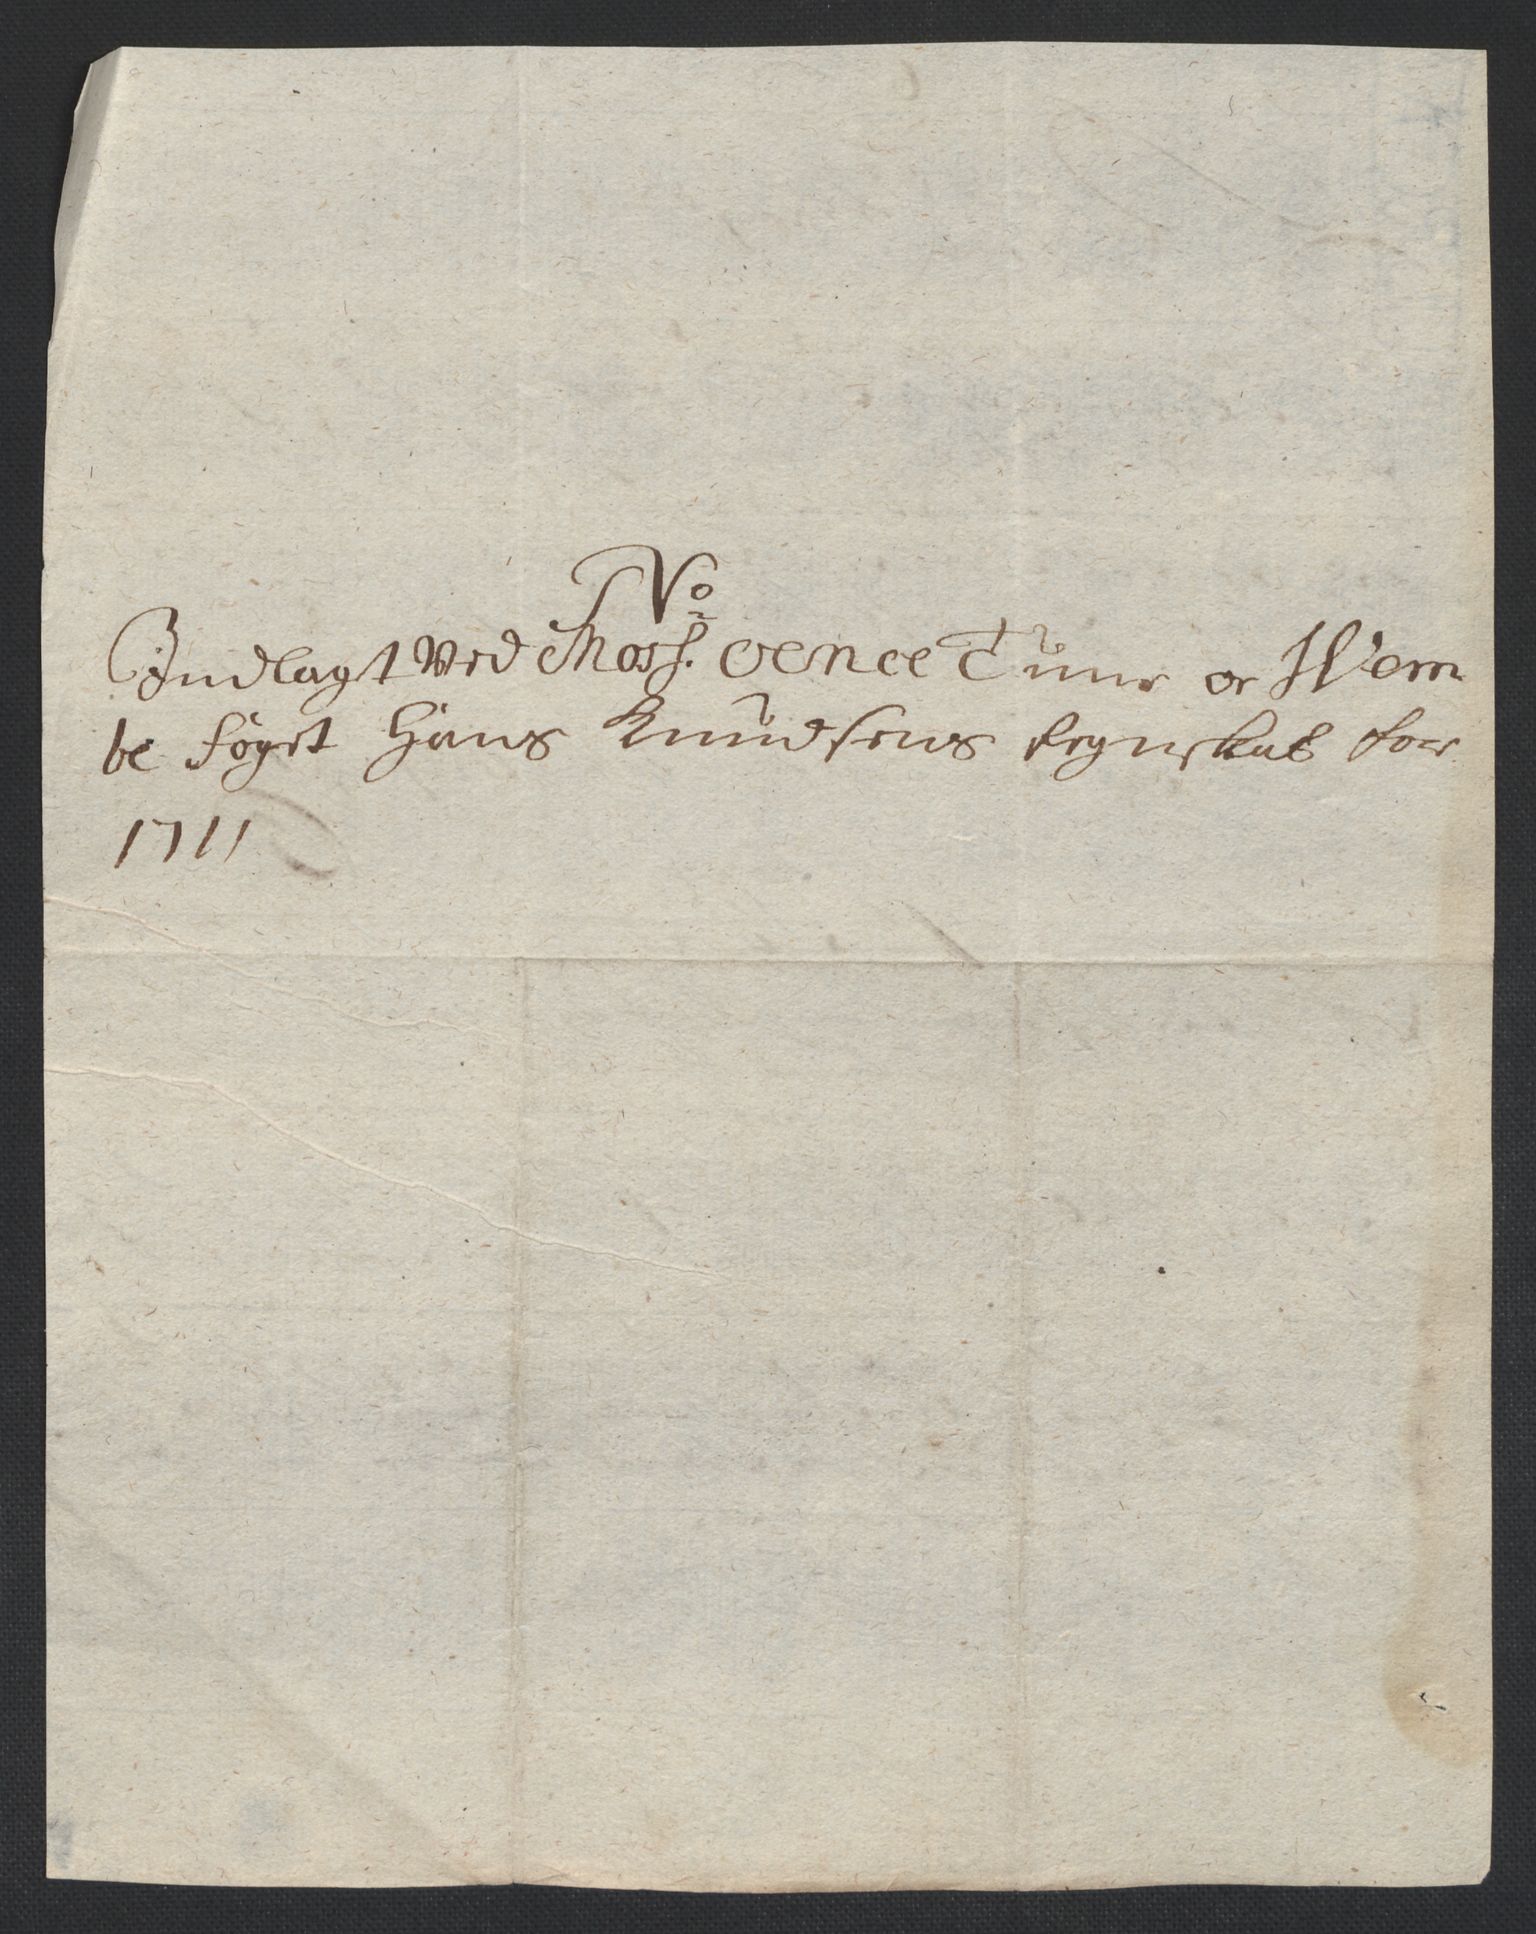 No
Indlagt Ved Moss. oence Tune oc Wem
be foget Hans Knudsens Regnskab for
1711